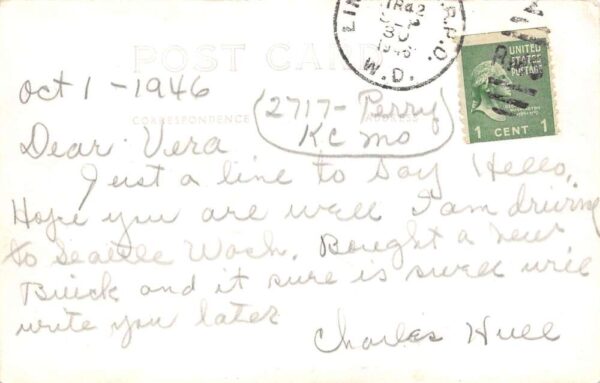 LIN R.P.O.
TR42
30
1946
W.D.
UNITED
STATES
POSTAGE
1 CENT 1
POST CARD
Oct 1-1946
(2717- Perry
KC Mo)
CORRESPONDENCE
ADDRESS
Dear Vera
Just a line to say Hello,
Hope you are well I am driving
to Seattle Wash. Bought a new
Buick and it sure is swell will
write you later
Charles Hull